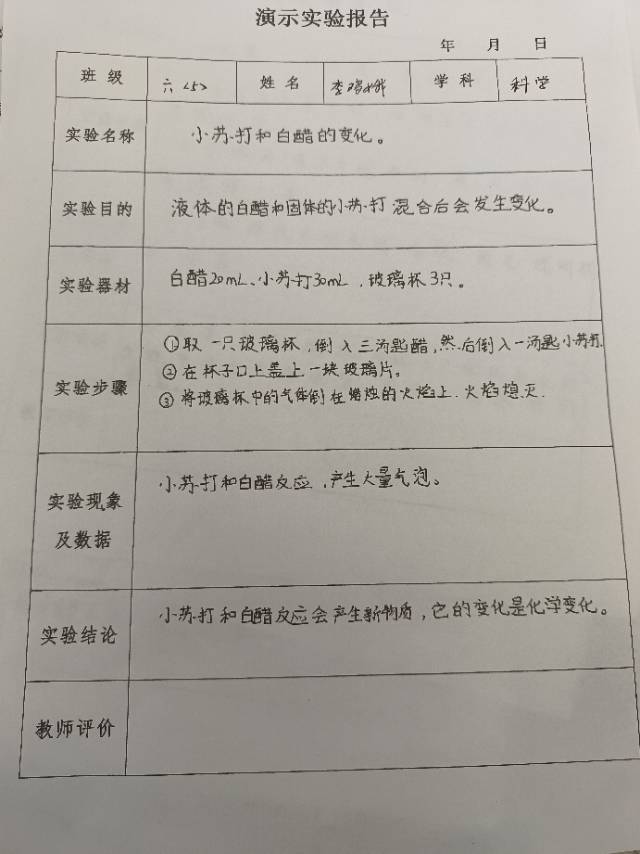 演示实验报告
年 月 日
班级 六<5> 姓名 学科 科学
实验名称 小苏打和白醋的变化。
实验目的 液体的白醋和固体的小苏打混合后会发生变化。
实验器材 白醋20mL、小苏打30mL，玻璃杯3只。
实验步骤
①取一只玻璃杯，倒入三汤匙醋，然后倒入一汤匙小苏打.
②在杯子口上盖上一块玻璃片。
③将玻璃杯中的气体倒在燃烛的火焰上.火焰熄灭.
实验现象
及数据
小苏打和白醋反应，产生大量气泡。
实验结论 小苏打和白醋反应会产生新物质，它的变化是化学变化。
教师评价